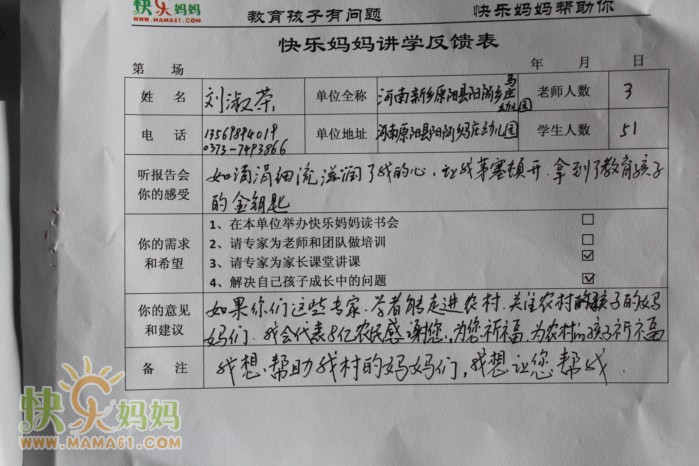 快乐妈妈
WWW.MAMA81.COM
教育孩子有问题 快乐妈妈帮助你
快乐妈妈讲学反馈表
第 场 年 月 日
姓 名 刘淑荣 单位全称 河南新乡原阳县阳阿乡马庄幼儿园 老师人数 3
电 话 13569894019 单位地址 河南原阳县阳阿乡马庄幼儿园 学生人数 51
0373-7493866
听报告会 如涓涓细流滋润了我的心,让我茅塞顿开.拿到了教育孩子
你的感受 的金钥匙
1、在本单位举办快乐妈妈读书会 □
你的需求 2、请专家为老师和团队做培训 □
和希望 3、请专家为家长课堂讲课 ☑
4、解决自己孩子成长中的问题 ☑
你的意见 如果你们这些专家.学者能走进农村.关注农村的孩子的妈
和建议 妈们.我会代表8亿农民感谢您,为您祈福,为农村的孩子祈福
备 注 我想帮助我村的妈妈们,我想让您帮我.
快乐妈妈
WWW.MAMA81.COM